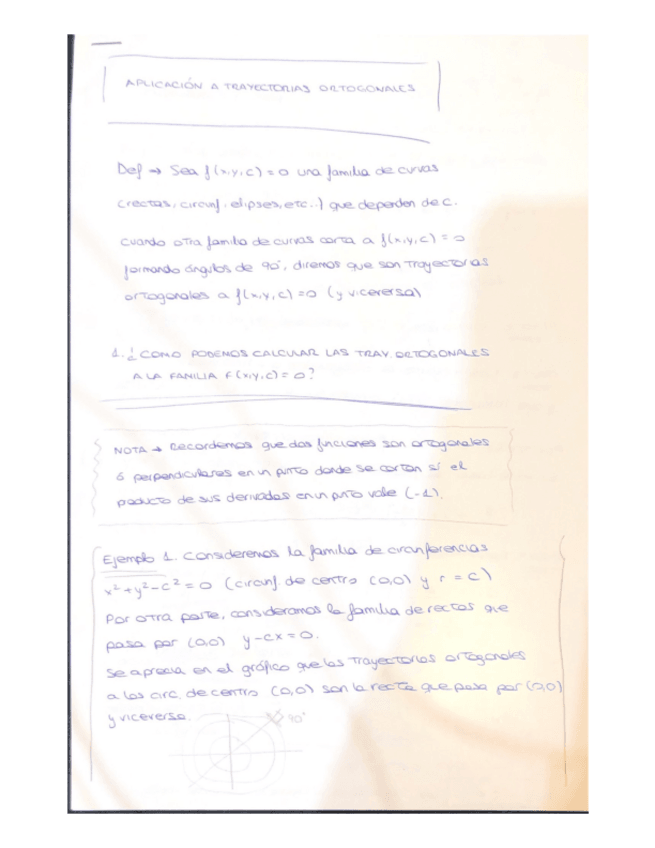 APLICACIÓN A TRAYECTORIAS ORTOGONALES
Def → Sea f(x,y,c) = 0 una familia de curvas
(rectas, circunf, elipses, etc..) que dependen de c.
Cuando otra familia de curvas corta a f(x,y,c) = 0
formando ángulos de 90°, diremos que son trayectorias
ortogonales a f(x,y,c) = 0 (y viceversa)
1. ¿COMO PODEMOS CALCULAR LAS TRAY. ORTOGONALES
A LA FAMILIA F(x,y,c) = 0?
NOTA → Recordemos que dos funciones son ortogonales
ó perpendiculares en un punto donde se cortan si el
producto de sus derivadas en un punto vale (-1).
Ejemplo 1. Consideremos la familia de circunferencias
x² + y² - c² = 0 (circunf de centro (0,0) y r = c)
Por otra parte, consideramos la familia de rectas que
pasa por (0,0) y - cx = 0.
Se aprecia en el gráfico que las trayectorias ortogonales
a las circ. de centro (0,0) son la recta que pasa por (0,0)
y viceversa.
90°